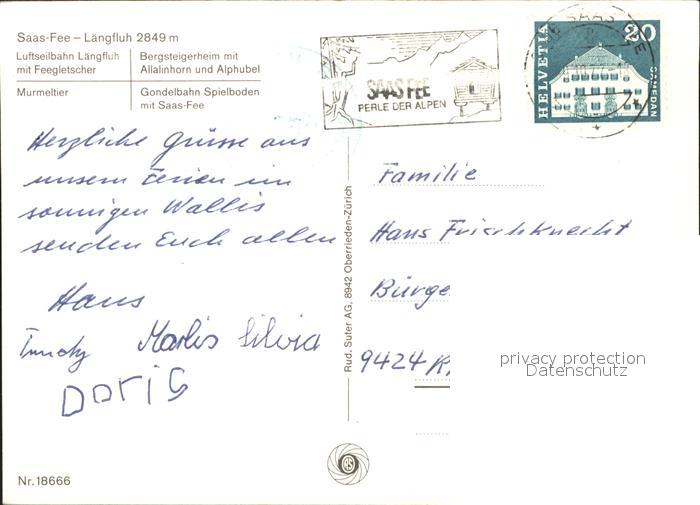 Saas-Fee – Längfluh 2849 m
Luftseilbahn Längfluh
mit Feegletscher
Bergsteigerheim mit
Allalinhorn und Alphubel
Murmeltier
Gondelbahn Spielboden
mit Saas-Fee
SAAS FEE
PERLE DER ALPEN
SAAS-FEE
HELVETIA
20
SAMEDAN
Herzliche Grüsse aus
unsern Ferien im
sonnigen Wallis
senden Euch allen
Hans
Marlis Silvia
Doris
Rud. Suter AG, 8942 Oberrieden-Zürich
Familie
Hans Frischknecht
Bürge
9424
privacy protection
Datenschutz
Nr. 18666